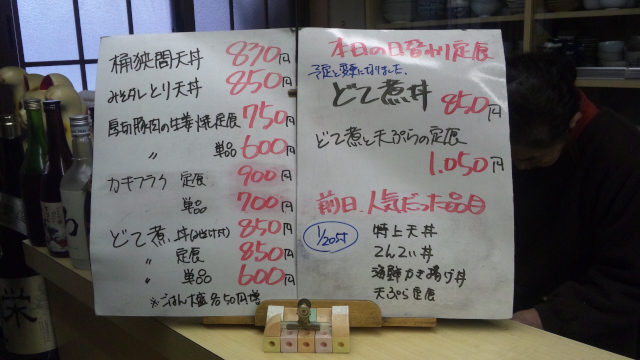 桶狭間天丼 870円
みそタレとり天丼 850円
厚切豚肉の生姜焼定食 750円
〃 単品 600円
カキフライ 定食 900円
単品 700円
どて煮 丼(みそ汁付) 850円
〃 定食 850円
〃 単品 600円
※ごはん大盛各50円増
本日の日替わり定食
予定と変更になりました。
どて煮丼 850円
どて煮と天ぷらの定食
1.050円
前日、人気だった品目
1/20は
特上天丼
てんてい丼
海鮮かき揚げ丼
天ぷら定食
栄